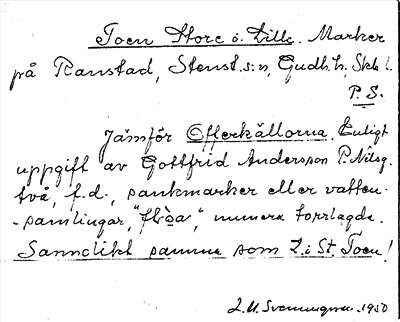 Toen Store o. Lille. Marker
på Ranstad, Stenst. s:n, Gudh. h. Skb. l.
P. S.
Jämför Offerkällorna. Enligt
uppgift av Gottfrid Andersson P. Nilsg.
två, f.d., sankmarker eller vatten-
-samlingar, "flöa", numera torrlagda.
Sannolikt samma som L. i St. Toen!
1950